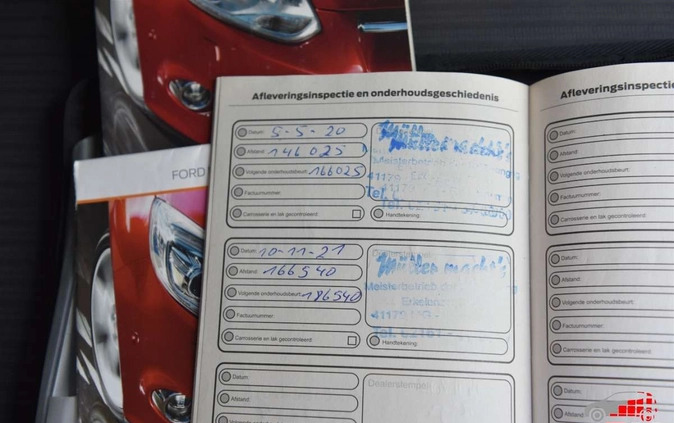 FORD
Afleveringsinspectie en onderhoudsgeschiedenis
Datum: 5-5-20
Afstand: 146025
Volgende onderhoudsbeurt: 166025
Factuurnummer:
Carrosserie en lak gecontroleerd:
Müller macht's
Meisterbetrieb
41179
Tel.
Handtekening:
Datum: 10-11-21
Afstand: 166540
Volgende onderhoudsbeurt: 186540
Factuurnummer:
Carrosserie en lak gecontroleerd:
Müller macht's
Meisterbetrieb der
41179
Tel. 02161 -
Handtekening:
Datum:
Afstand:
Volgende onderhoudsbeurt:
Dealerstempel:
Afleveringsinspectie
Datum:
Afstand:
Volgende onderhoudsbeurt:
Factuurnummer:
Carrosserie en lak gecontroleerd:
Datum:
Afstand:
Volgende onderhoudsbeurt:
Factuurnummer:
Carrosserie en lak gecontroleerd:
Datum:
Afstand: